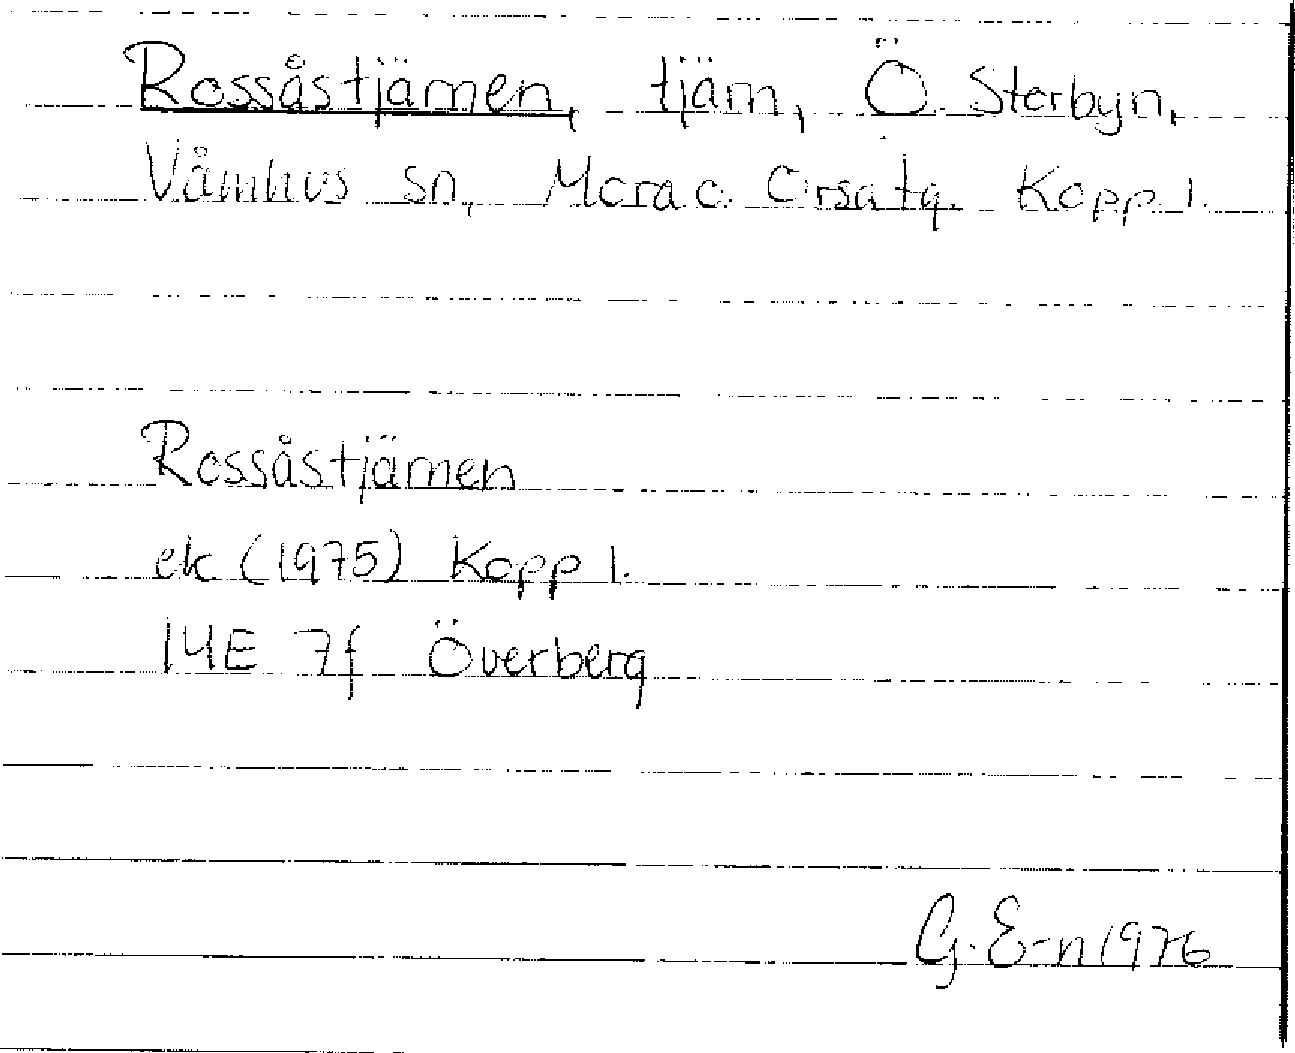 Rossåstjärnen, tjärn, Ö. Storbyn,
Våmhus sn, Mora o. Orsa tg. Kopp l.
Rossåstjärnen
ek (1975) Kopp l.
14E 7f Överberg
G. E-n 1976